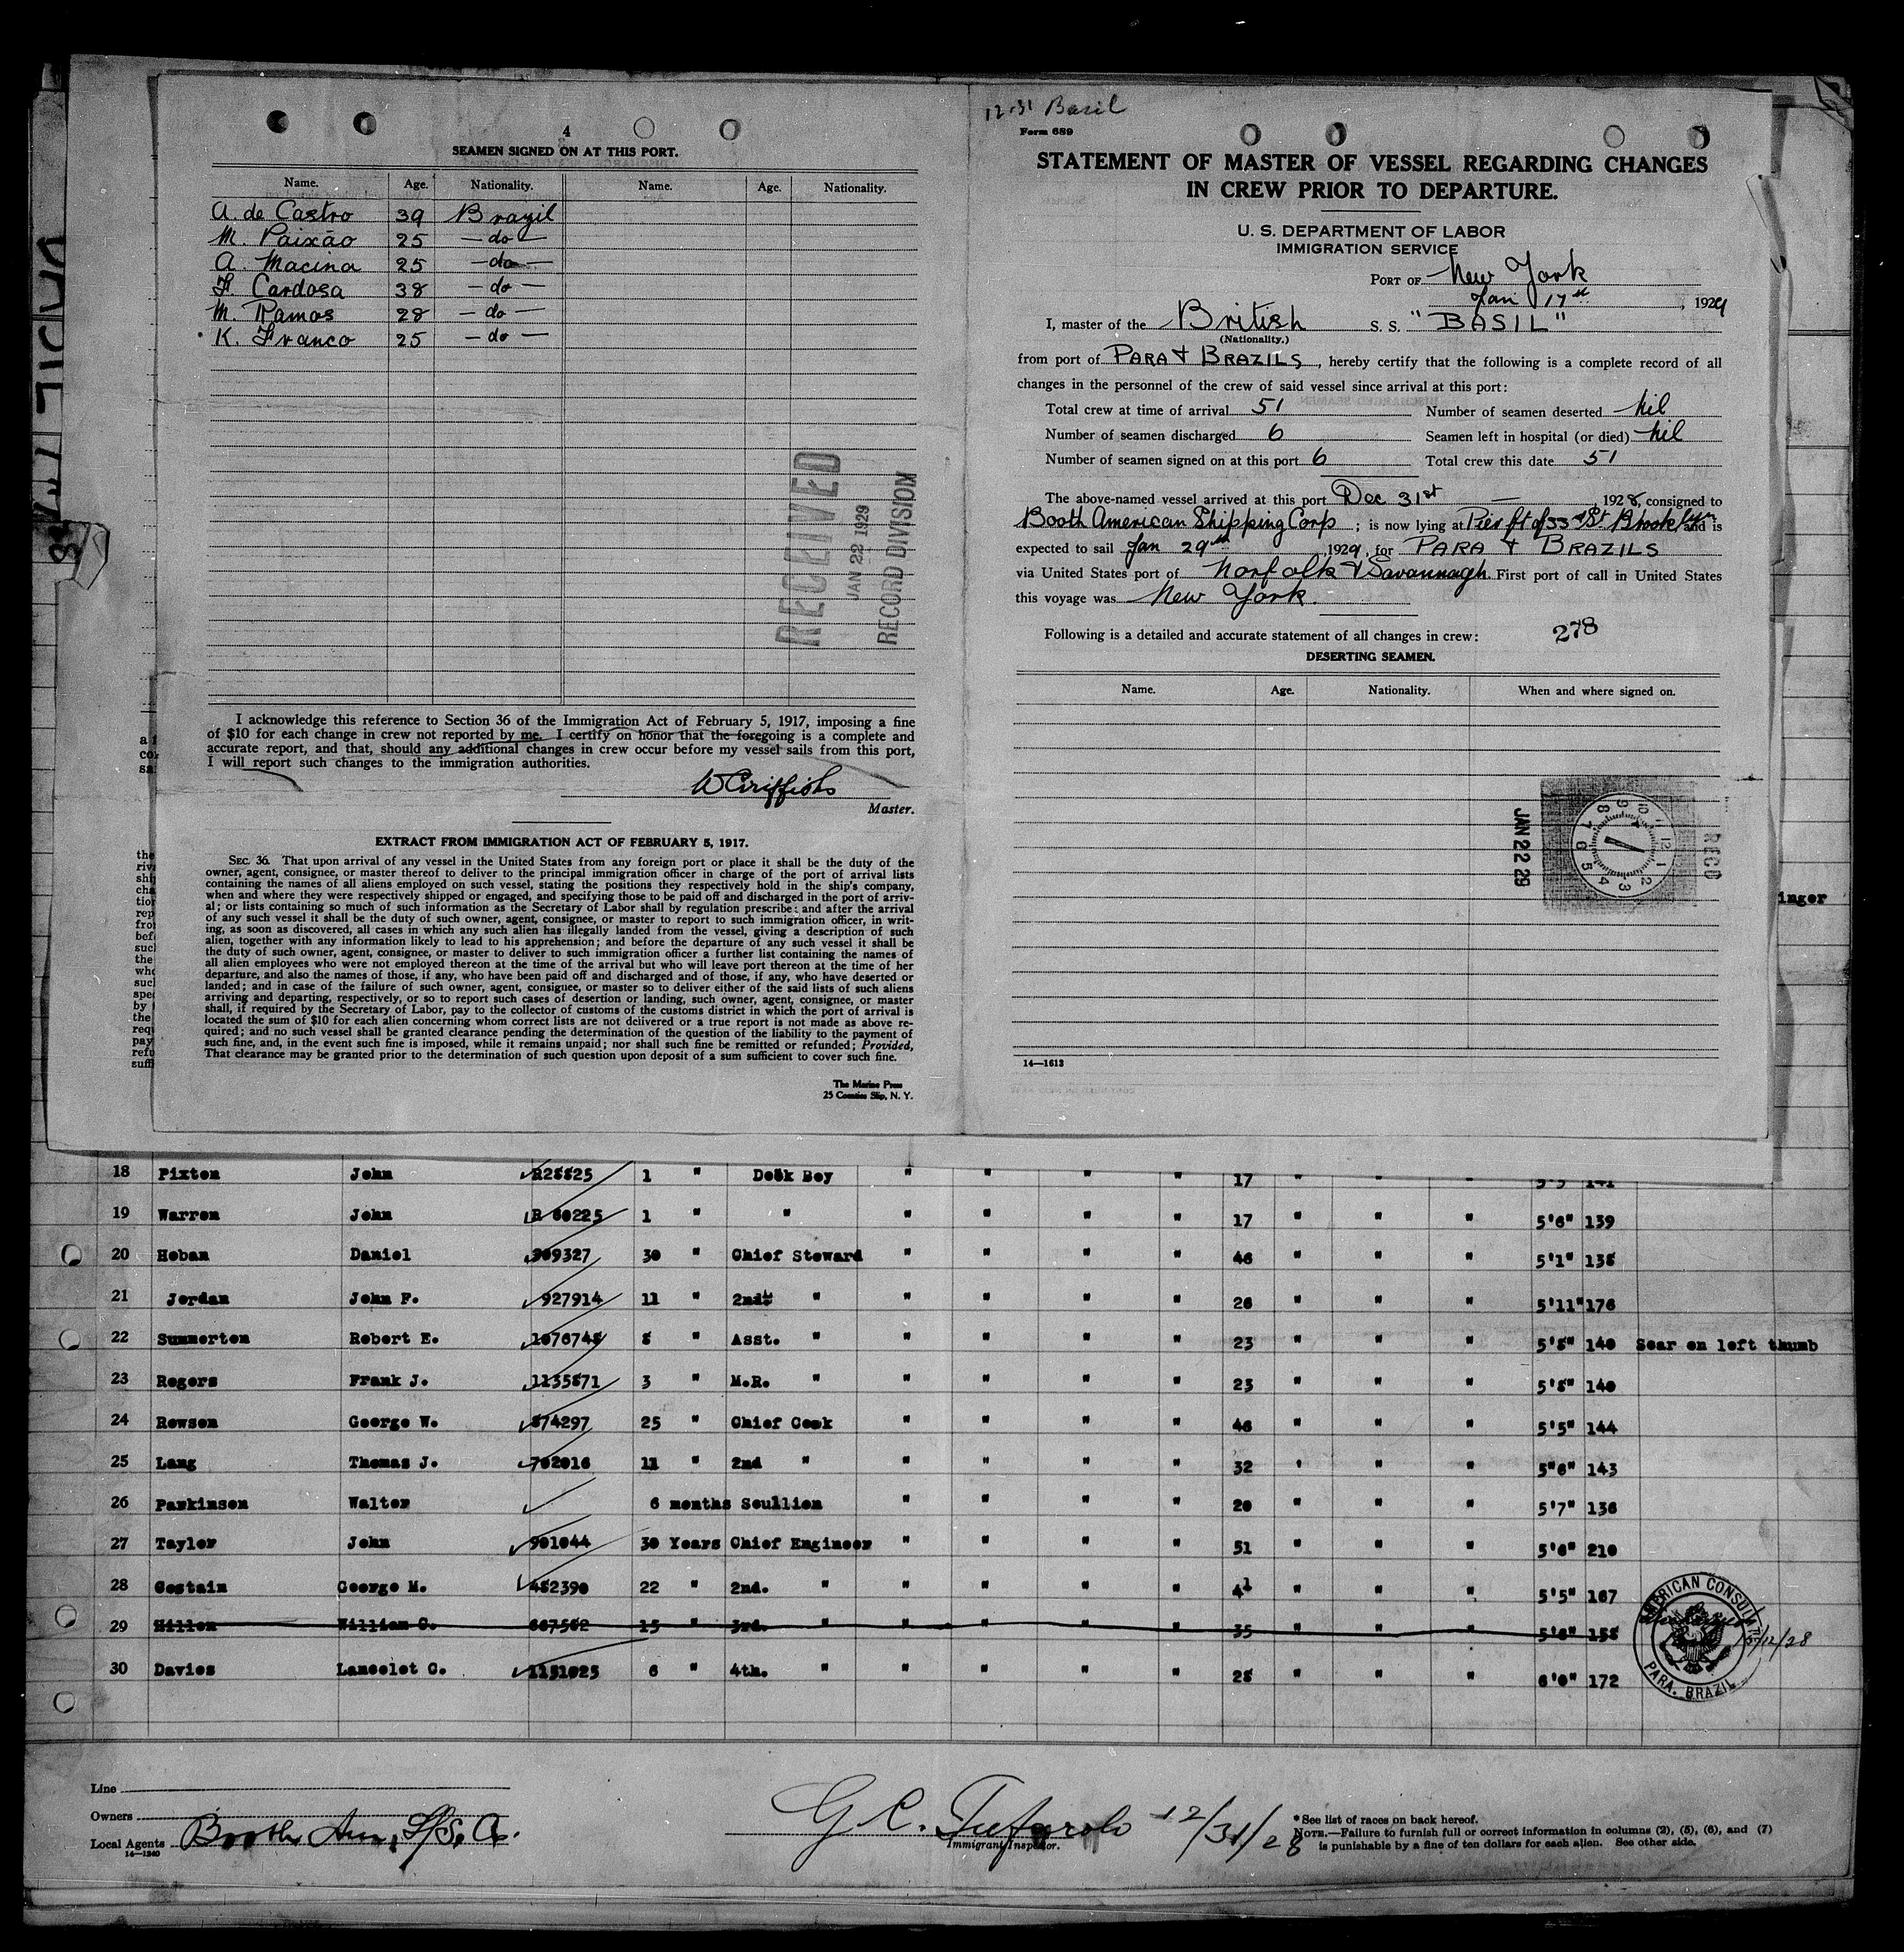 4
SEAMEN SIGNED ON AT THIS PORT.
Name. Age. Nationality. Name. Age. Nationality.
A. de Castro 39 Brazil
M. Paixão 25 — do —
A. Macina 25 — do —
F. Cardosa 38 — do —
M. Ramos 28 — do —
K. Franco 25 — do —
RECEIVED
JAN 22 1929
RECORD DIVISION
I acknowledge this reference to Section 36 of the Immigration Act of February 5, 1917, imposing a fine
of $10 for each change in crew not reported by me. I certify on honor that the foregoing is a complete and
accurate report, and that, should any additional changes in crew occur before my vessel sails from this port,
I will report such changes to the immigration authorities.
W Griffiths
Master.
EXTRACT FROM IMMIGRATION ACT OF FEBRUARY 5, 1917.
SEC. 36. That upon arrival of any vessel in the United States from any foreign port or place it shall be the duty of the
owner, agent, consignee, or master thereof to deliver to the principal immigration officer in charge of the port of arrival lists
containing the names of all aliens employed on such vessel, stating the positions they respectively hold in the ship's company,
when and where they were respectively shipped or engaged, and specifying those to be paid off and discharged in the port of arriv-
al; or lists containing so much of such information as the Secretary of Labor shall by regulation prescribe; and after the arrival
of any such vessel it shall be the duty of such owner, agent, consignee, or master to report to such immigration officer, in writ-
ing, as soon as discovered, all cases in which any such alien has illegally landed from the vessel, giving a description of such
alien, together with any information likely to lead to his apprehension; and before the departure of any such vessel it shall be
the duty of such owner, agent, consignee, or master to deliver to such immigration officer a further list containing the names of
all alien employees who were not employed thereon at the time of the arrival but who will leave port thereon at the time of her
departure, and also the names of those, if any, who have been paid off and discharged and of those, if any, who have deserted or
landed; and in case of the failure of such owner, agent, consignee, or master so to deliver either of the said lists of such aliens
arriving and departing, respectively, or so to report such cases of desertion or landing, such owner, agent, consignee, or master
shall, if required by the Secretary of Labor, pay to the collector of customs of the customs district in which the port of arrival is
located the sum of $10 for each alien concerning whom correct lists are not delivered or a true report is not made as above re-
quired; and no such vessel shall be granted clearance pending the determination of the question of the liability to the payment of
such fine, and, in the event such fine is imposed, while it remains unpaid; nor shall such fine be remitted or refunded; Provided,
That clearance may be granted prior to the determination of such question upon deposit of a sum sufficient to cover such fine.
The Marine Press
25 Coenties Slip, N. Y.
12-31 Basil
Form 689
STATEMENT OF MASTER OF VESSEL REGARDING CHANGES
IN CREW PRIOR TO DEPARTURE.
U. S. DEPARTMENT OF LABOR
IMMIGRATION SERVICE
PORT OF New York
Jan 17th, 1929
I, master of the British S. S. "BASIL"
(Nationality.)
from port of PARA & BRAZILS, hereby certify that the following is a complete record of all
changes in the personnel of the crew of said vessel since arrival at this port:
Total crew at time of arrival 51 Number of seamen deserted Nil
Number of seamen discharged 6 Seamen left in hospital (or died) Nil
Number of seamen signed on at this port 6 Total crew this date 51
The above-named vessel arrived at this port Dec 31st — 1928, consigned to
Booth American Shipping Corp; is now lying at Pier ft of 33rd St. Brooklyn and is
expected to sail Jan 29th 1929, for PARA & BRAZILS
via United States port of Norfolk & Savannagh. First port of call in United States
this voyage was New York.
Following is a detailed and accurate statement of all changes in crew: 278
DESERTING SEAMEN.
Name. Age. Nationality. When and where signed on.
RECD
JAN 22 29
14—1613
inger
18 Pixton John R28825 1 " Deck Boy " " " " 17 " " " 5'5 141
19 Warren John R 60225 1 " " " " " " 17 " " " 5'6" 139
20 Hoban Daniel 909327 30 " Chief Steward " " " " 46 " " " 5'1" 138
21 Jordan John F. 927914 11 " 2nd " " " " " 26 " " " 5'11" 176
22 Summerton Robert E. 1076748 8 " Asst. " " " " " 23 " " " 5'8" 140 Scar on left thumb
23 Rogers Frank J. 1135871 3 " M.R. " " " " " 23 " " " 5'8" 140
24 Rowson George W. 874297 25 " Chief Cook " " " " 46 " " " 5'5" 144
25 Lang Thomas J. 702016 11 " 2nd " " " " " 32 ' " " 5"6" 143
26 Parkinson Walter 6 months Scullion " " " " 20 " " " 5'7" 136
27 Taylor John 901044 30 Years Chief Engineer " " " " 51 " " " 5'6" 210
28 Costain George M. 482390 22 " 2nd. " " " " " 41 " " " 5'5" 167
29 Hillen William C. 667502 15 " 3rd. " " " " " 35 " " " 5'8" 158
30 Davies Lancelot C. 1151025 6 " 4th. " " " " " 28 " " " 6'0" 172
AMERICAN CONSULATE
PARA. BRAZIL
15/12/28
Line
Owners
Local Agents Booth Am. S/S. Co.
14—1240
12/31/28
Immigrant Inspector.
* See list of races on back hereof.
NOTE.—Failure to furnish full or correct information in columns (2), (5), (6), and (7)
is punishable by a fine of ten dollars for each alien. See other side.